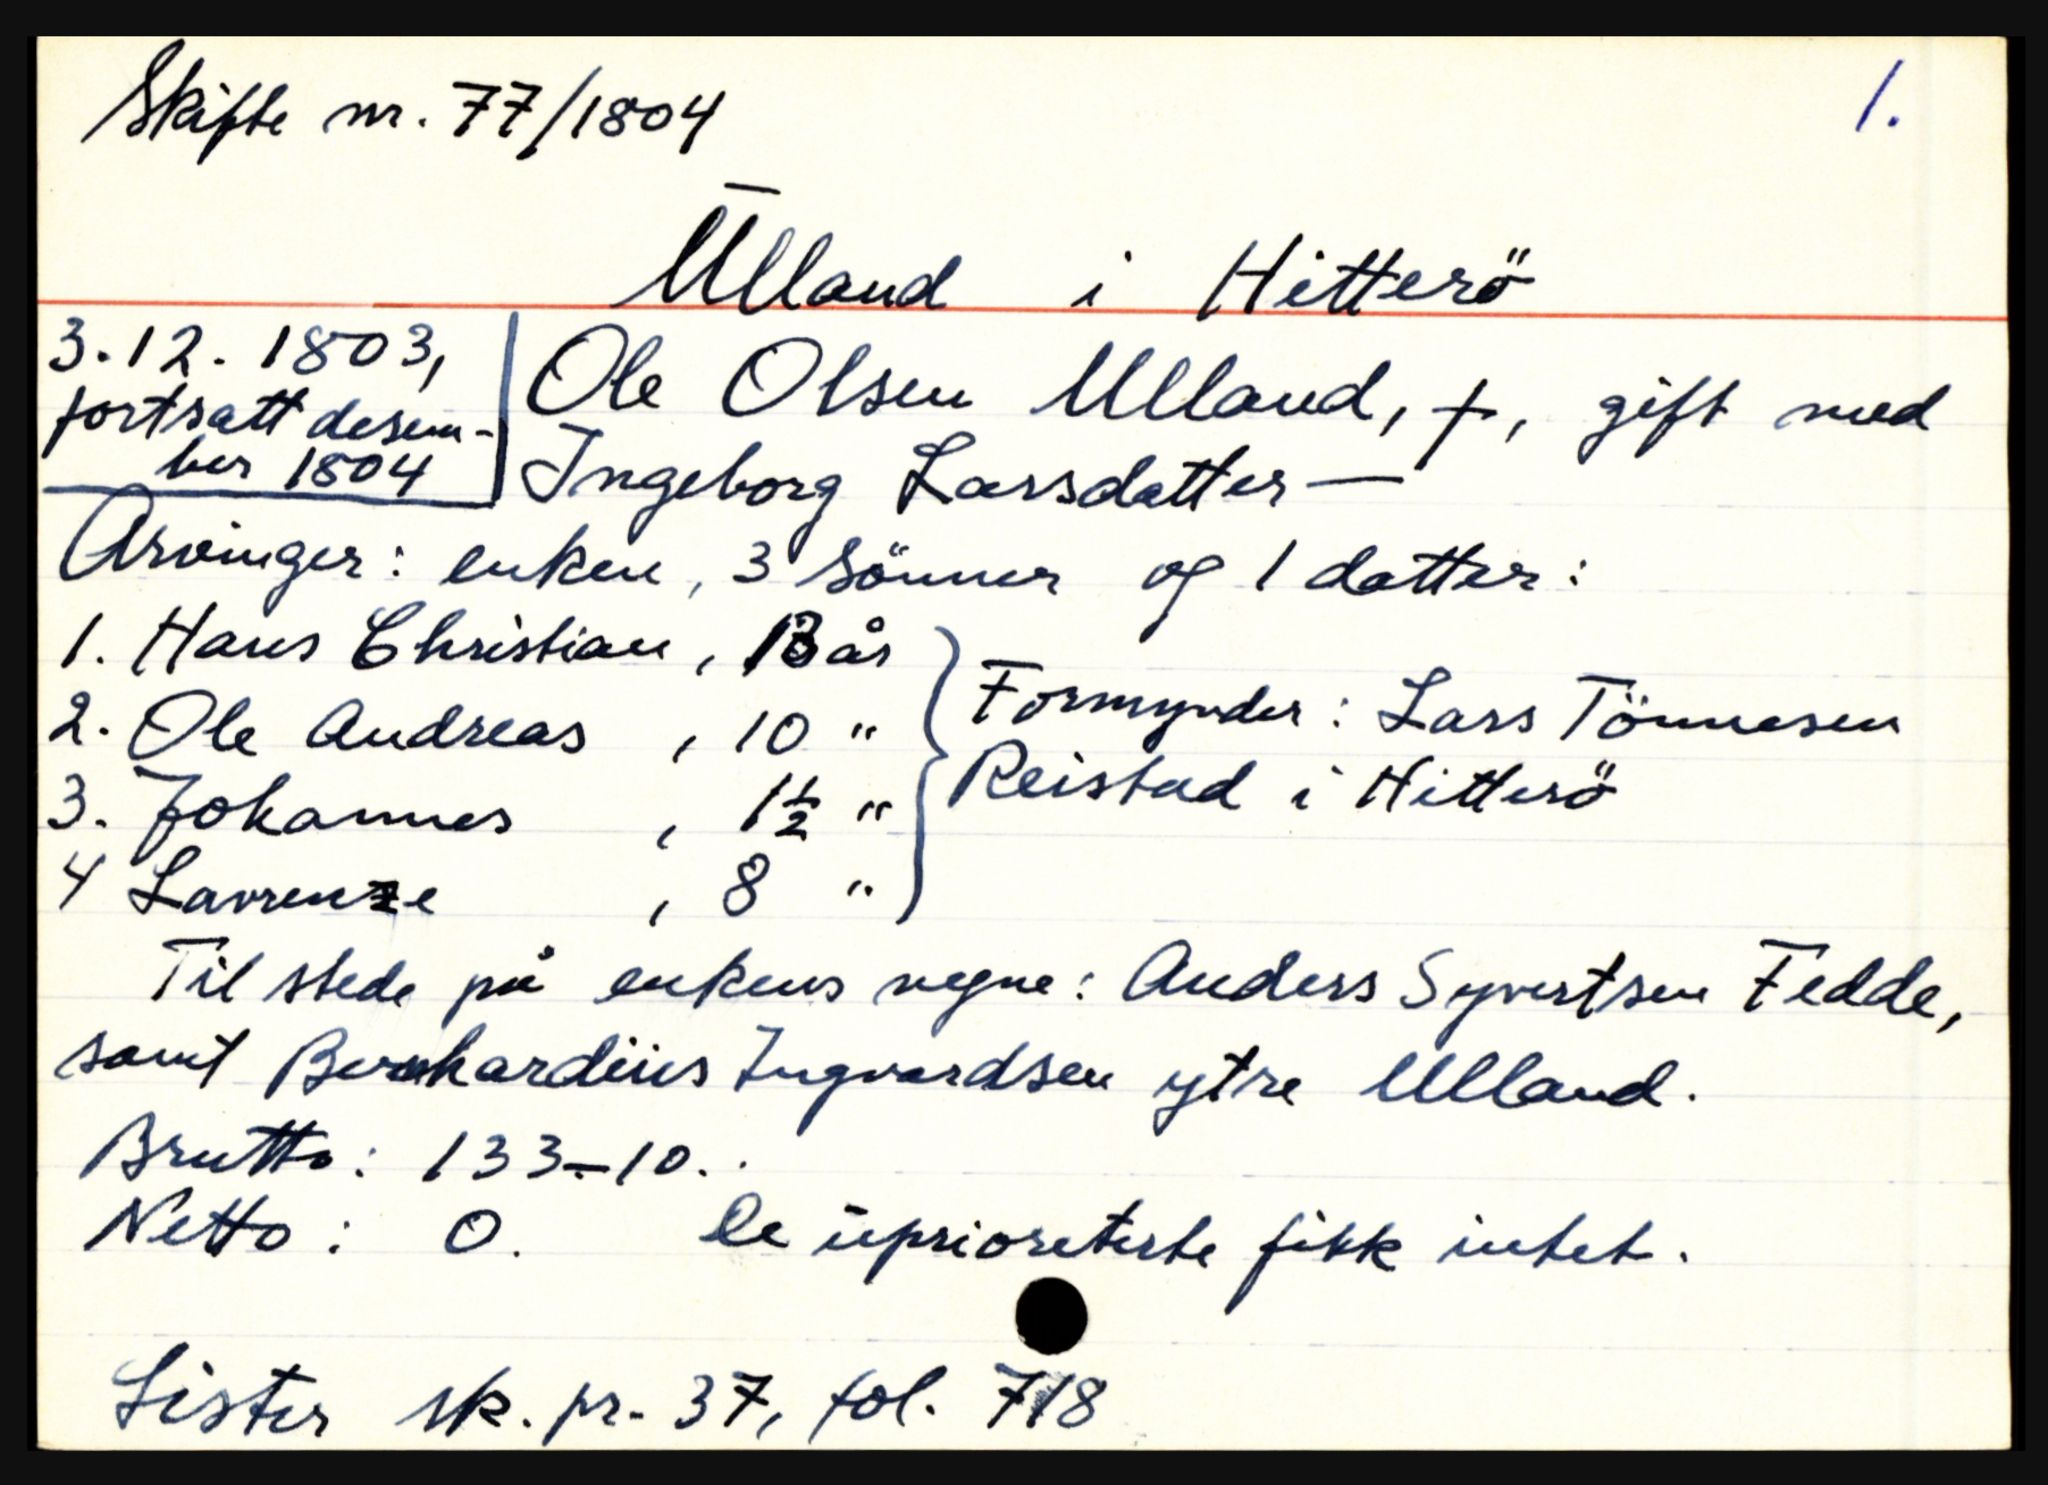 Skifte nr. 77/1804
1.
Ulland i Hitterö
3.12. 1803,
fortsatt desem-
ber 1804
Ole Olsen Ulland, +, gift med
Ingeborg Larsdatter —
Arvinger: enken, 3 sönner og 1 datter:
1. Hans Christian, 13 år
2. Ole Andreas, 10 "
3. Johannes, 1½ "
4 Lavrenze, 8 "
Formynder: Lars Tönnesen
Reistad i Hitterö
Til stede på enkens vegne: Anders Syvertsen Fedde,
samt Bernhardius Ingvardsen ytre Ulland.
Brutto: 133-10.
Netto: 0. De uprioreterte fikk intet.
Lister sk. pr. 37, fol. 718